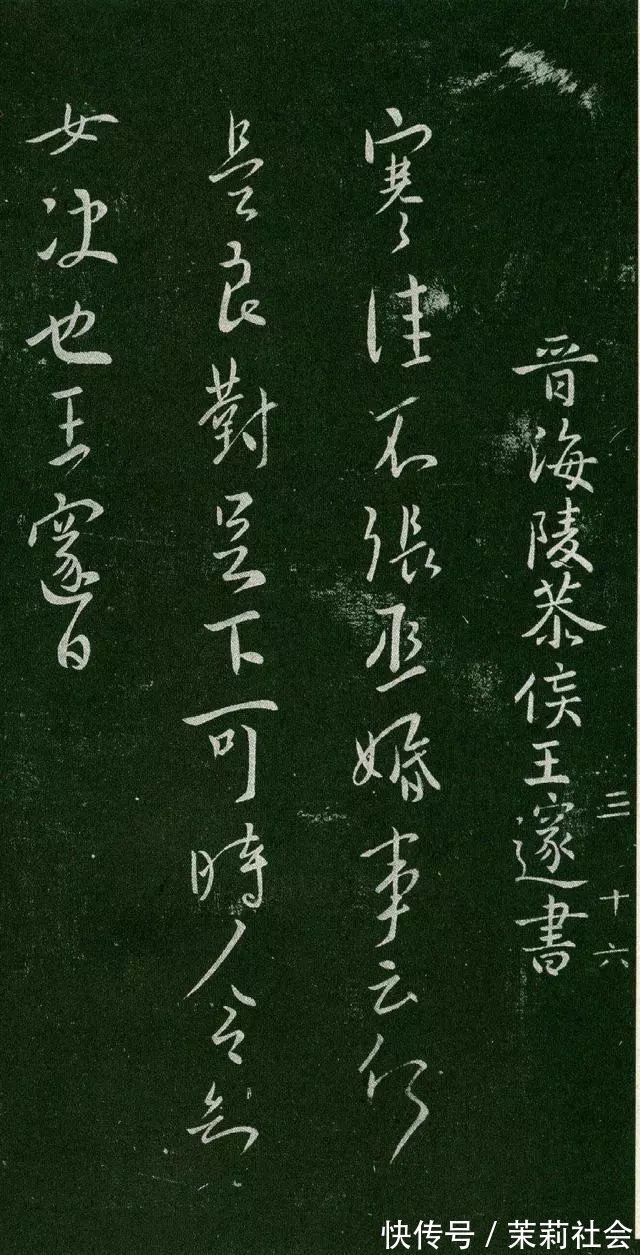 晋海陵恭侯王邃書
三 十六
寒佳不張丞婚事云何
是良對足下可時人令知
女决也王邃白
快传号／茉莉社会